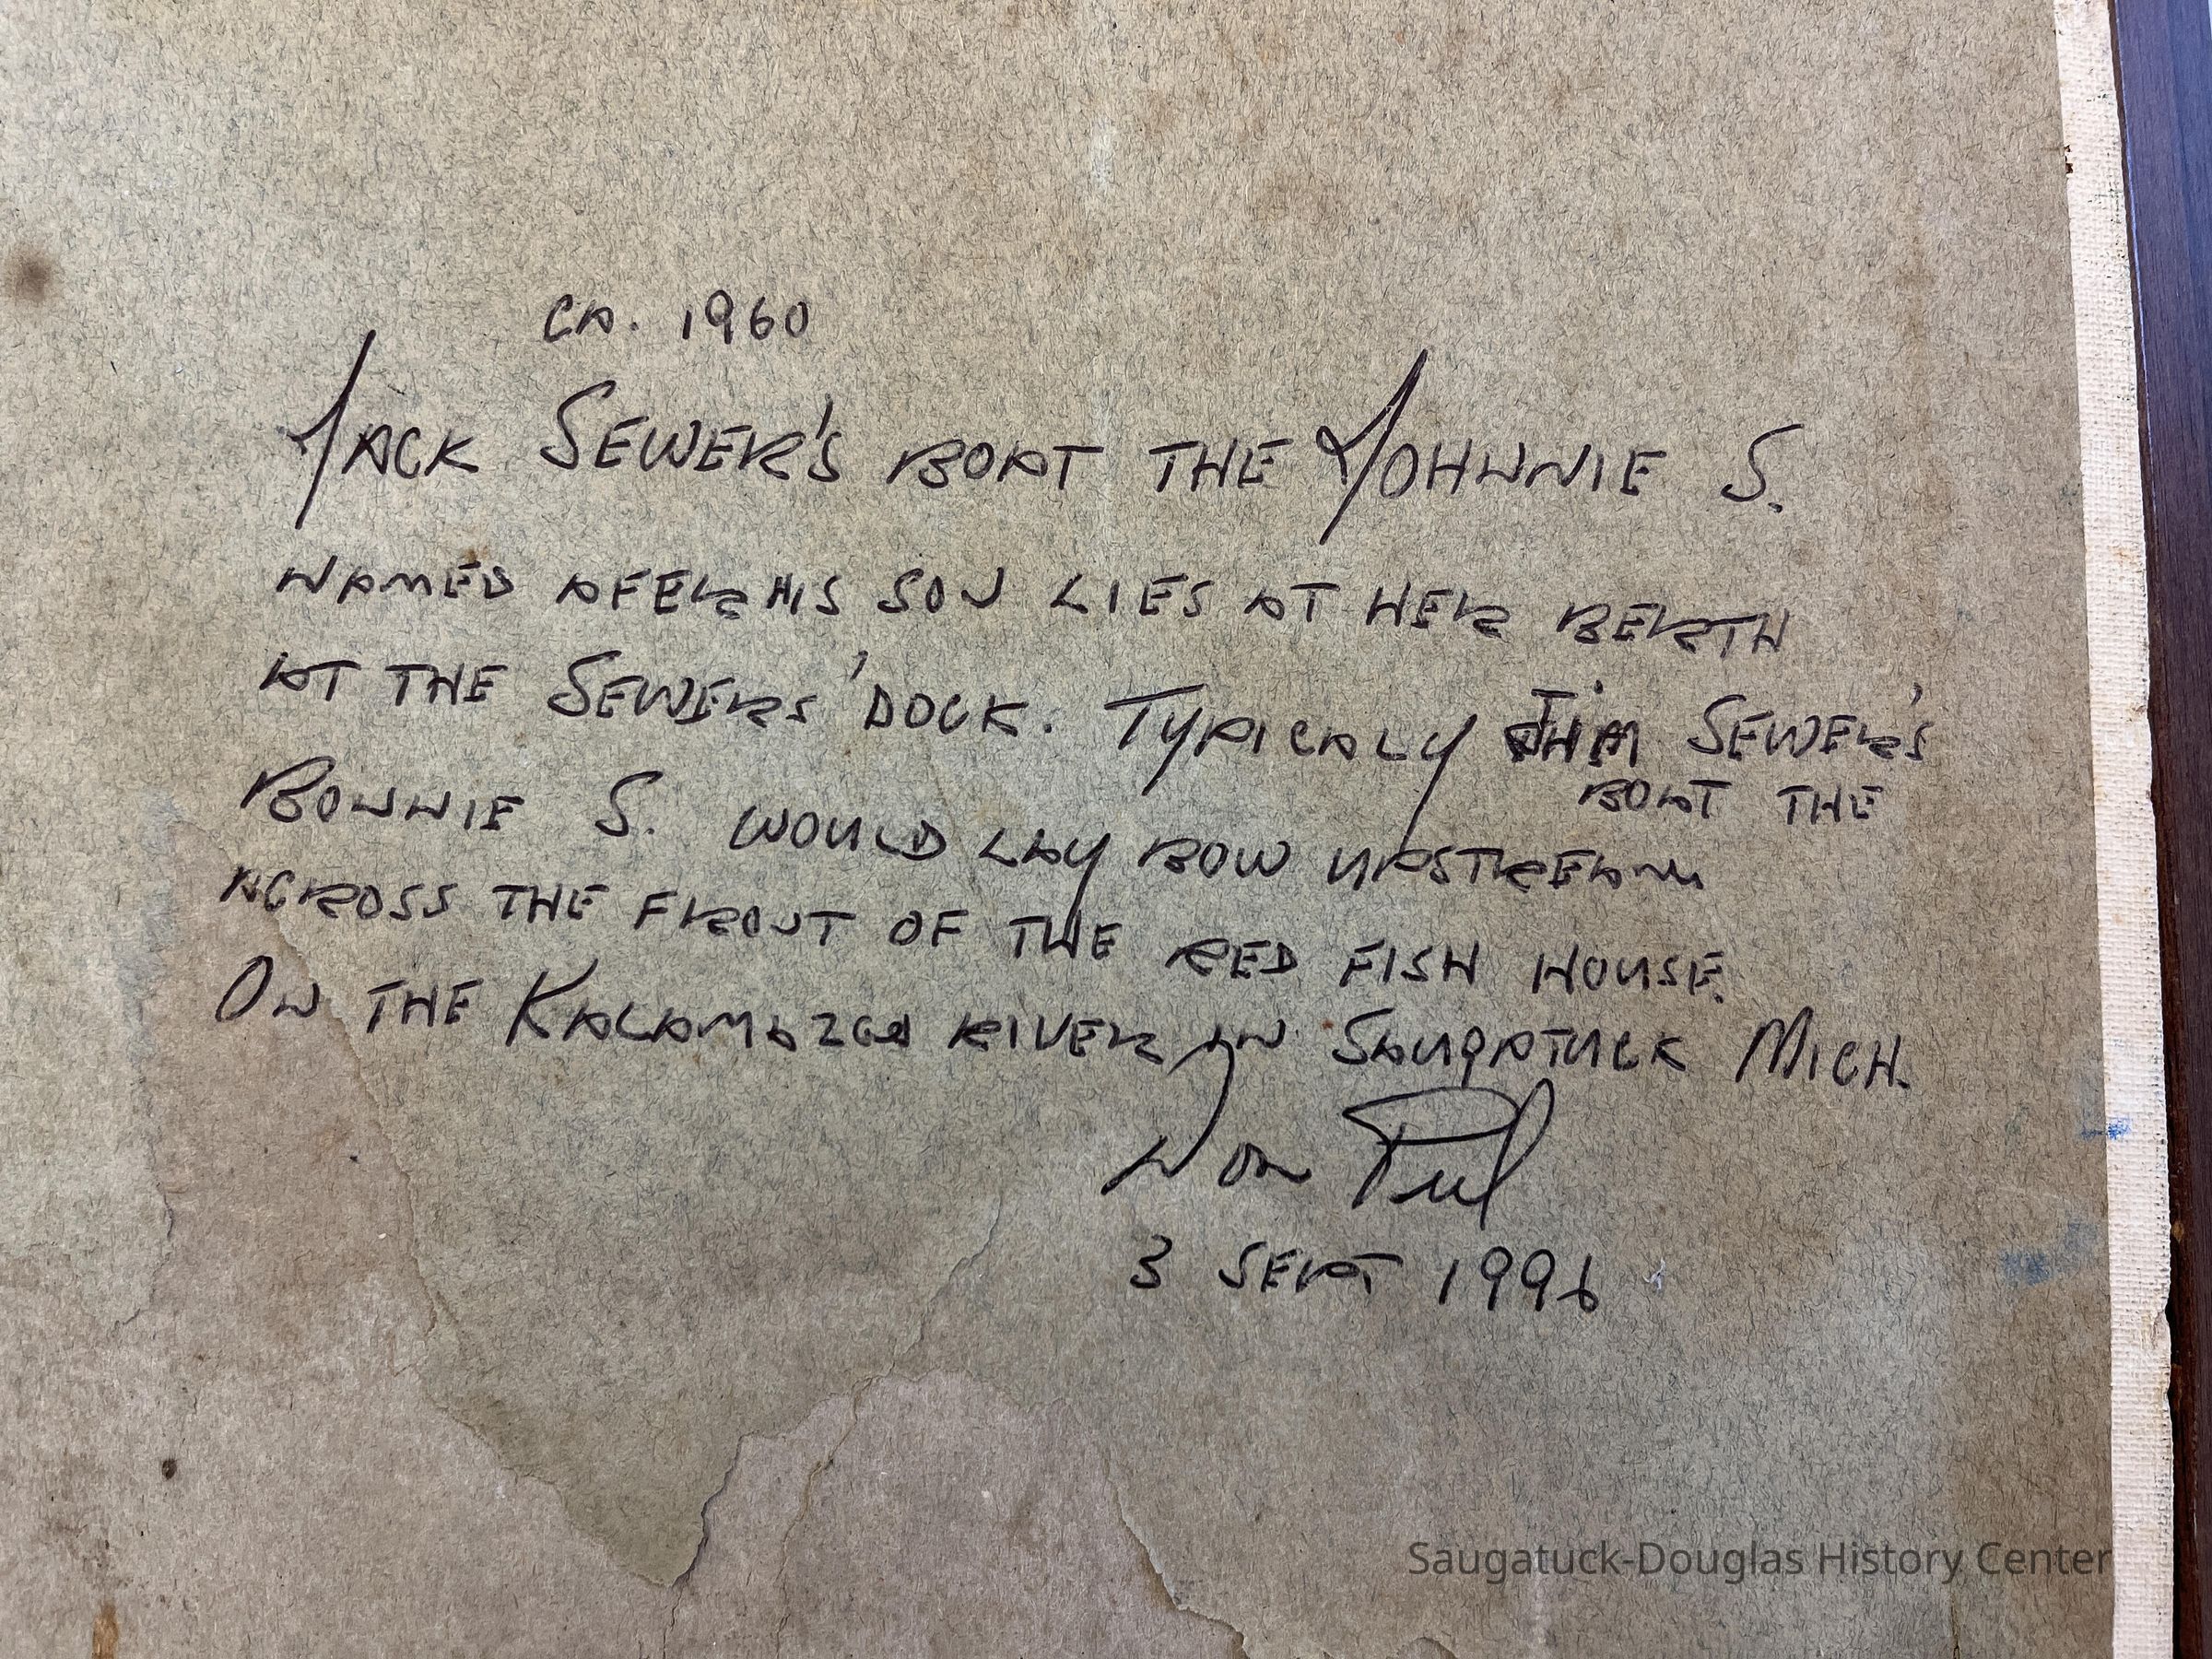 CA. 1960
JACK SEWER'S BOAT THE JOHNNIE S.
NAMED AFER HIS SON LIES AT HER BERTH
AT THE SEWERS' DOCK. TYPICALY JIM SEWER'S
BOAT THE
BONNIE S. WOULD LAY BOW UPSTREAM
ACROSS THE FRONT OF THE RED FISH HOUSE.
ON THE KALAMAZOO RIVER IN SAUGATUCK MICH.
Don
3 SEPT 1996
Saugatuck-Douglas History Center